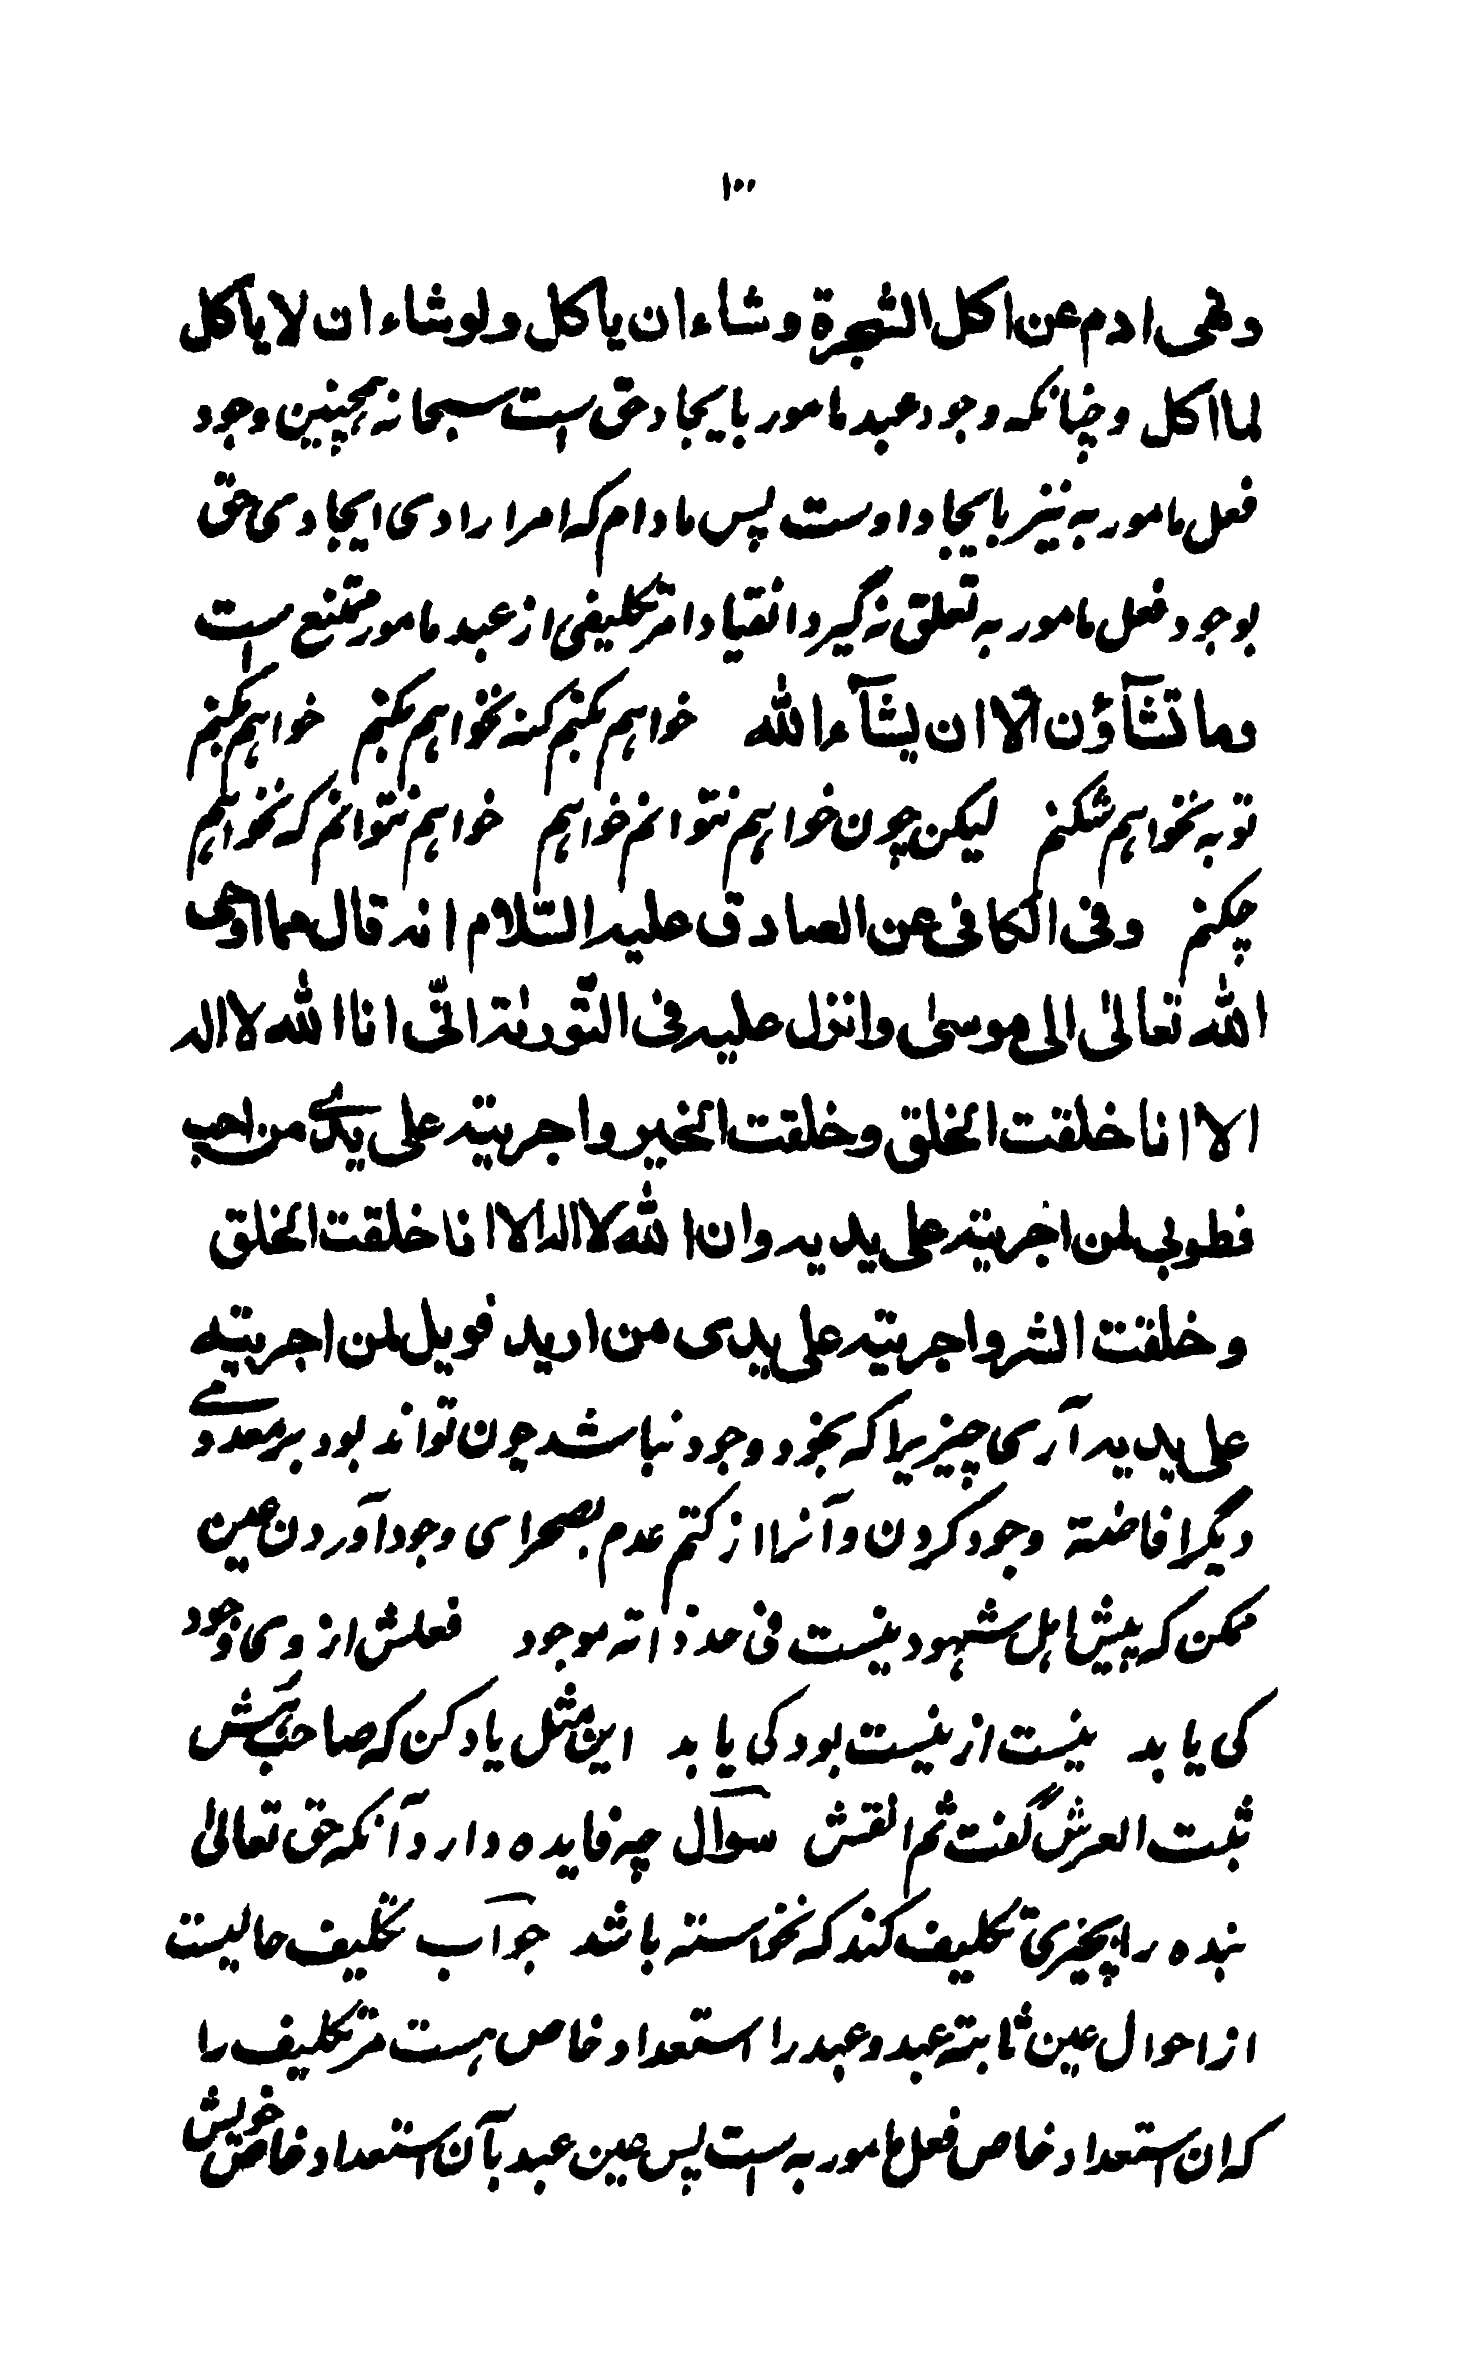 ۱۰۰
ونهی ادم عن اکل الشجرة وشاء ان یاکل ولو شاء ان لا یاکل
لما اکل وچنانکه وجود عبد مامور بایجاد حق است سبحانه همچنین وجود
فعل مامور به نیز بایجاد اوست پس مادام که امر ارادی ایجادی حق
بوجود فعل مامور به تعلق نه گیرد انقیاد امر تکلیفی از عبد مامور ممتنع است
وما تشآؤن الا ان یشآء الله خواهم نکنم گنه نخواهم نکنم خواهم نکنم
توبه نخواهم شکنم لیکن چون خواهم نتوانم خواهم خواهم نتوانم که نخواهم
چکنم وفی الکافی عن الصادق علیه السّلام انه قال مما اوحی
الله تعالیٰ الی موسیٰ وانزل علیه فی التّورٰیة انّی انا الله لا اله
الا انا خلقت الخلق وخلقت الخیر واجریته علی یدی من احب
فطوبی لمن اجریته علی یدیه وانا الله لا اله الا انا خلقت الخلق
وخلقت الشر واجریته علی یدی من ارید فویل لمن اجریته
علی یدیه آری چیزیرا که بخود وجود نباشد چون تواند بود بر معدومے
دیگر افاضهٔ وجود کردن و آنرا از کتم عدم بصحرای وجود آوردن عین
ممکن که پیش اهل شهود نیست فی حد ذاته موجود فعلش از وی وجود
کی یابد نیست از نیست بود کی یابد این مثل یاد کن که صاحب هش
ثبت العرش گفت ثم انقش سوآل چه فایده دارد آنکه حق تعالیٰ
بنده را بچیزی تکلیف کند که نخواسته باشد جوآب تکلیف حالیست
از احوال عین ثابتهٔ عبد و عبد را استعداد خاص هست مر تکلیف را
که ان استعداد خاص فعل مامور به است پس عین عبد بآن استعداد خاص خویش